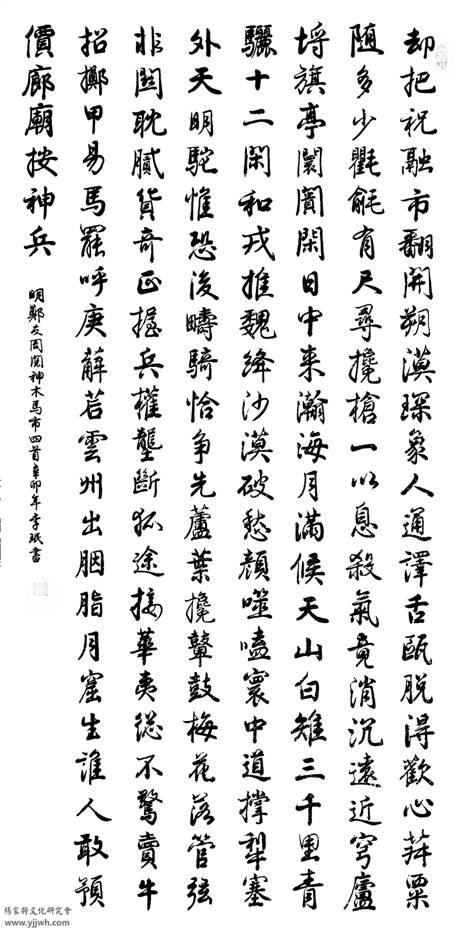 却把祝融市翻開朔漠琛象人通譯舌甌脫得歡心粟
随多少氍毹有尺尋攙槍一以息殺氣竟消沉遠近穹廬
埒旗亭闤闠閑日中来瀚海月滿候天山白雉三千里青
驪十二閑和戎推魏絳沙漠破愁顏噬嗑寰中道撑犁塞
外天明駝惟恐後疇騎恰争先蘆葉攙鼙鼓梅花落管弦
非関耽膩貨奇正握兵權壟斷狐途接華夷総不驚賣牛
招擲甲易馬罷呼庚薛若雲州出胭脂月窟生誰人敢預
價廊廟按神兵
明鄭友周閱神木馬市四首辛卯年李珉書
楊家將文化研究會
www.yjjwh.com